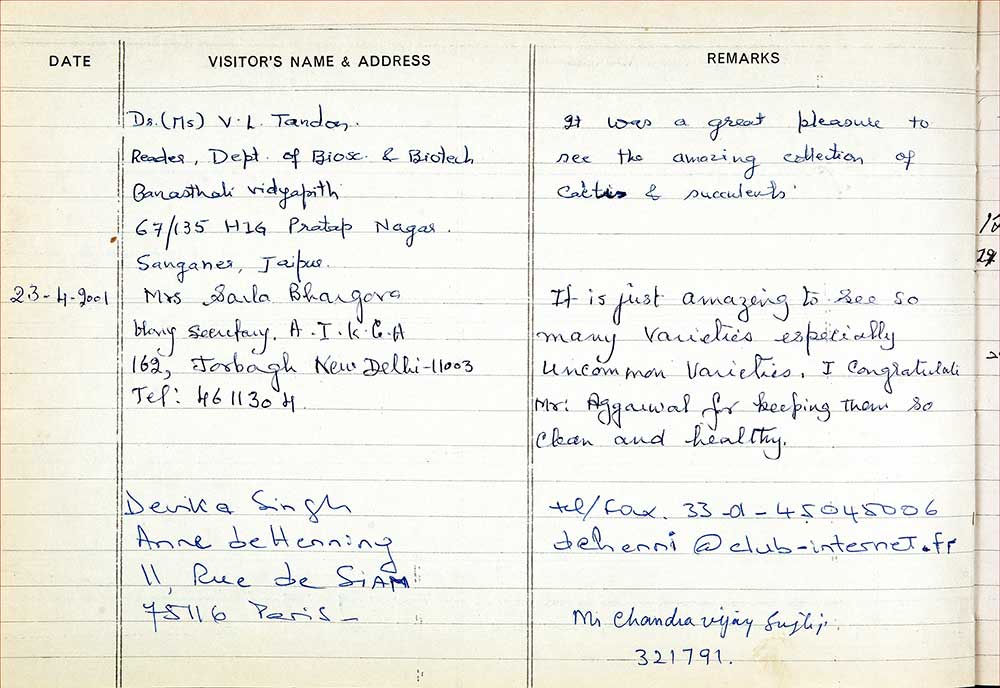 DATE
VISITOR'S NAME & ADDRESS
REMARKS
Dr. (Ms) V. L. Tandon.
Reader, Dept. of Biosc. & Biotech
Banasthali vidyapith
67/135 HIG Pratap Nagar.
Sanganer, Jaipur.
It was a great pleasure to
see the amazing collection of
Cactus & succulents.
23-4-2001
Mrs Sarla Bhargava
Hony Secretary. A.I.K.E.A
162, Jorbagh New Delhi-11003
Tel: 4611304.
It is just amazing to see so
many varieties especially
Uncommon Varieties. I Congratulate
Mr: Aggarwal for keeping them so
Clean and healthy.
Devika Singh
Anne deHenning
11, Rue de SIAM
75116 Paris-
tel/fax. 33-01-45045006
dehenni@club-internet.fr
Mr Chandra vijay
321791.